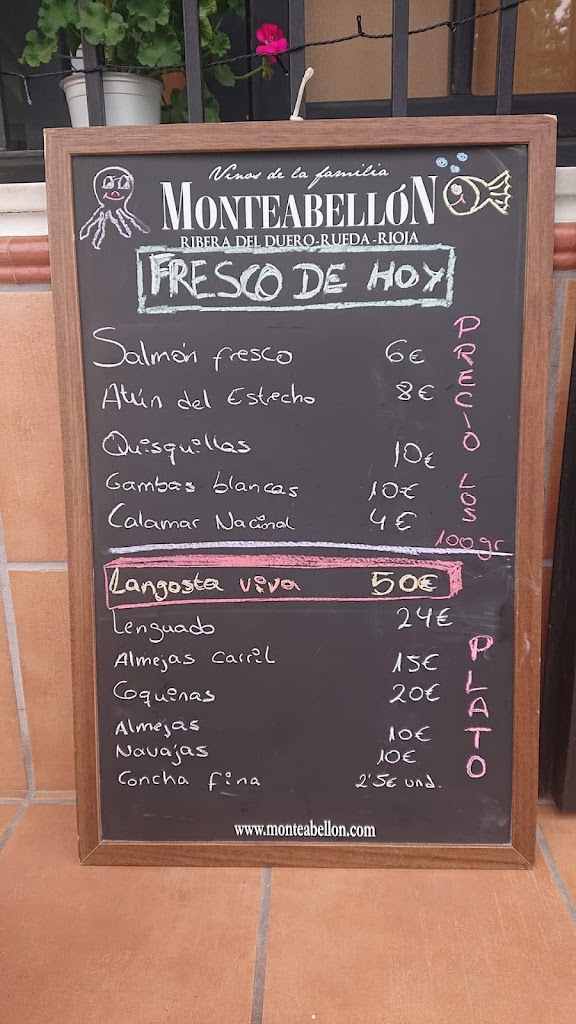 Vinos de la familia
MONTEABELLÓN
RIBERA DEL DUERO-RUEDA-RIOJA
FRESCO DE HOY
Salmón fresco 6€
Atún del Estrecho 8€
Quisquillas 10€
Gambas blancas 10€
Calamar Nacinal 4€
PRECIO LOS 100gr
Langosta viva 50€
Lenguado 24€
Almejas Carril 15€
Coquinas 20€
Almejas 10€
Navajas 10€
Concha fina 2'5€ und.
PLATO
www.monteabellon.com